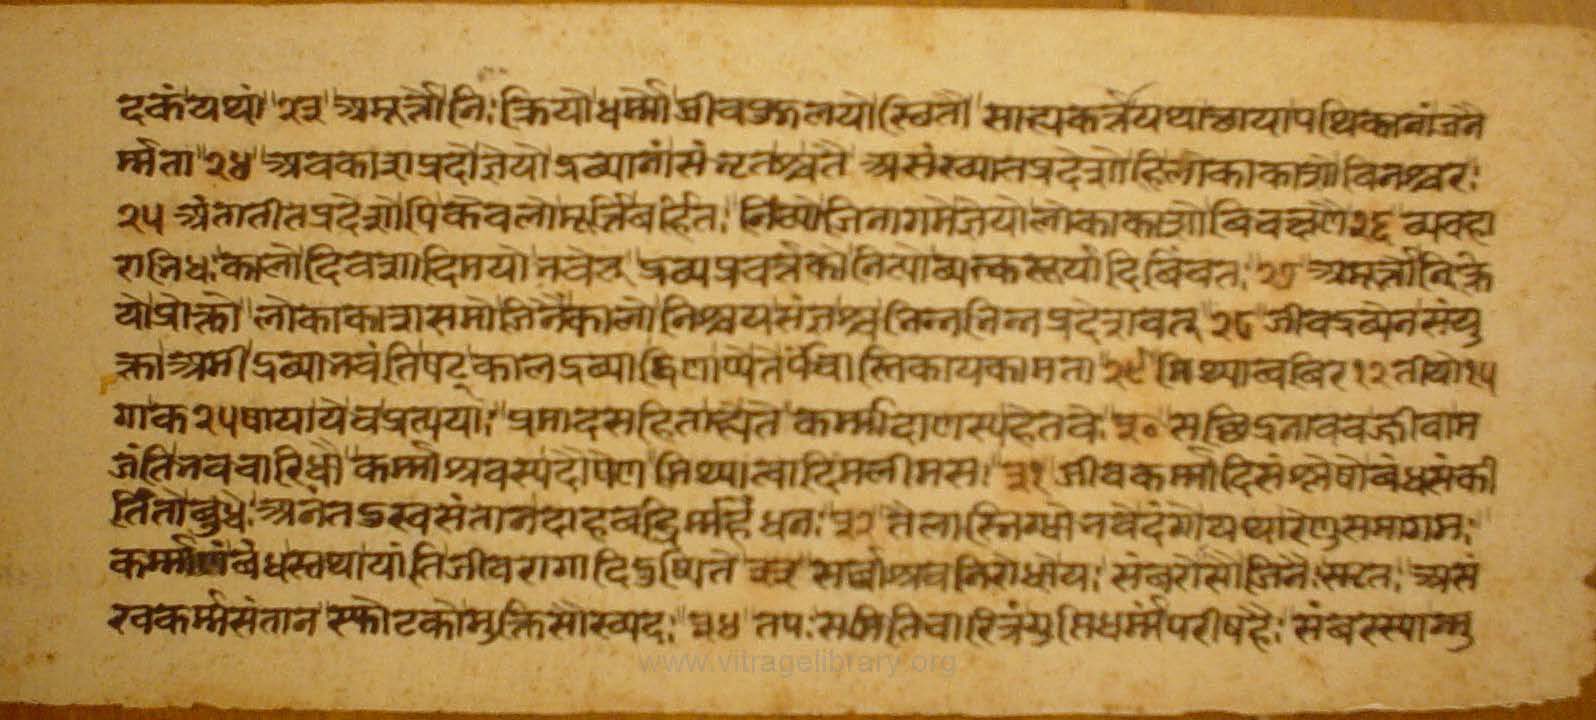 दकं यथा २३ अमूर्त्तो निःक्रियो धर्म्मो जीवपुद्गलयो स्थितौ साह्यकर्त्ते यथा छाया पथिकानां जनै
र्म्मता २४ अवकाशप्रदो ज्ञेयो द्रव्यानां संसृतश्वतै असंख्यातप्रदेशो हि लोकाकाशो विनश्वरः
२५ अंतातीतप्रदेशोपि केवलो मूर्त्तिवर्हितः नित्यो जिनागमे ज्ञेयो लोकाकाशो विचक्षणै २६ व्यवहा
राभिधः कालो दिवशादिमयो भवेत् द्रव्यप्रवर्त्तको नित्यो व्यत्क सूर्यादिबिंबतः २७ अमूर्त्तो निःक्रि
यो प्रोक्तो लोकाकाशसमो जिनै कालो निश्चयसंज्ञश्च भिन्नभिन्नप्रदेशवत् २८ जीवद्रव्येन संयु
क्ता अमी द्रव्या भवंति षट् कालद्रव्याद्विणाप्येते पंचास्तिकायका मता २९ मिथ्यात्व विर १२ तीयो १५
गा क २५ षाया ये च प्रत्ययाः प्रमादसहिता ह्येते कर्म्मादाणस्य हेतवे ३० सछिद्रनाववज्जीवा म
ज्जंति भववारिधौ कर्म्माश्रवस्य दोषेण मिथ्यात्वादिमलीमस ३१ जीवकर्म्मादिसंश्लेषो बंध संकी
र्तितो बुधै अनंतदुखसंतानदाहवद्भिर्म्महिंधनः ३२ तैलास्निग्धो भवेदंगो यथा रेणुसमागमः
कर्म्मणां बंधस्तथा यांति जीव रागादिदुष्यिते ३३ सर्वाश्रवनिरोधो यः संवरो सौ जिनै स्मृतः असं
खकर्म्मसंतानस्फोटको मुक्तिसौख्यदः ३४ तपः समितिचारित्रं गुप्तिधर्म्मपरीषहैः संवरस्या मु
www.vitragelibrary.org